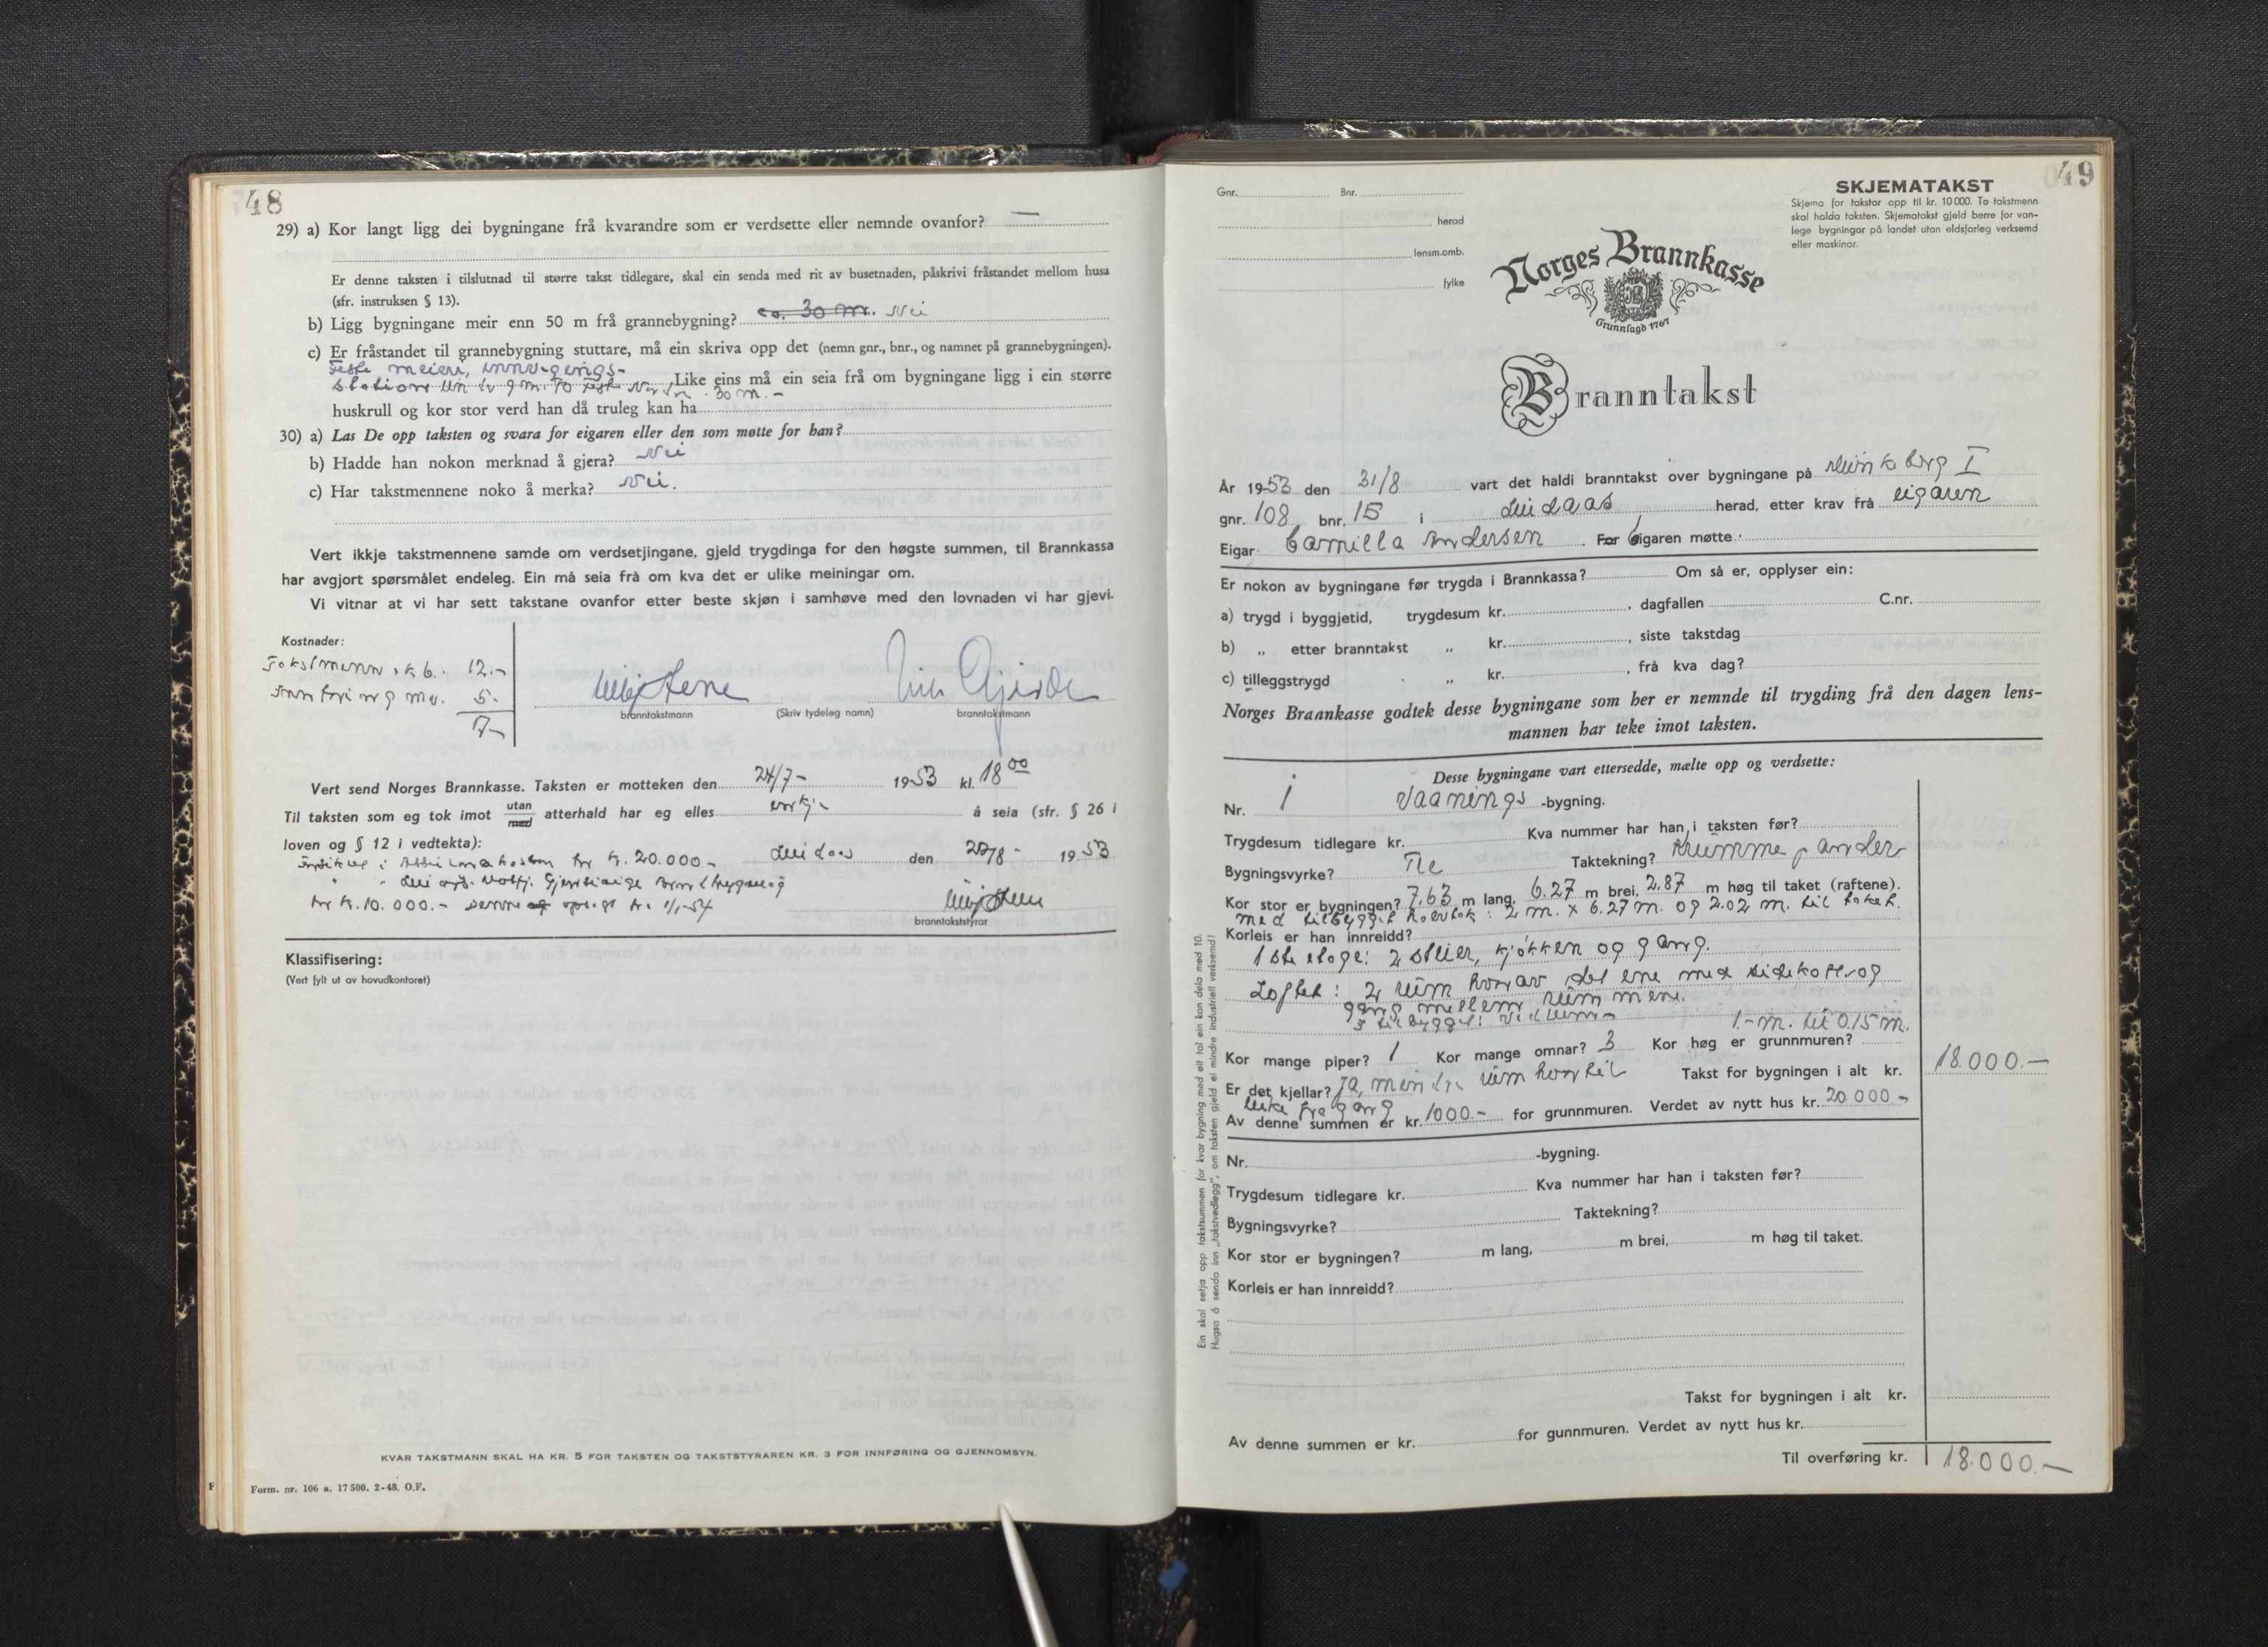 48
29) a) Kor langt ligg dei bygningane frå kvarandre som er verdsette eller nemnde ovanfor? —
Er denne taksten i tilslutnad til større takst tidlegare, skal ein senda med rit av busetnaden, påskrivi fråstandet mellom husa
(sfr. instruksen § 13).
b) Ligg bygningane meir enn 50 m frå grannebygning? ca. 30 m. Nei
c) Er fråstandet til grannebygning stuttare, må ein skriva opp det (nemn gnr., bnr., og namnet på grannebygningen).
meieri,
Like eins må ein seia frå om bygningane ligg i ein større
30 m. -
huskrull og kor stor verd han då truleg kan ha
30) a) Las De opp taksten og svara for eigaren eller den som møtte for han?
b) Hadde han nokon merknad å gjera? Nei
c) Har takstmennene noko å merka? Nei.
Vert ikkje takstmennene samde om verdsetjingane, gjeld trygdinga for den høgste summen, til Brannkassa
har avgjort spørsmålet endeleg. Ein må seia frå om kva det er ulike meiningar om.
Vi vitnar at vi har sett takstane ovanfor etter beste skjøn i samhøve med den lovnaden vi har gjevi.
Kostnader:
Takstmenn 12.-
Innføring 5.-
17.-
branntakstmann (Skriv tydeleg namn) branntakstmann
Vert send Norges Brannkasse. Taksten er motteken den 24/7- 1953 kl. 18 00
Til taksten som eg tok imot utan/med atterhald har eg elles å seia (sfr. § 26 i
loven og § 12 i vedtekta):
kr. 20.000.- Lindaas den 1953
kr. 10.000.- 1/1-54
branntakststyrar
Klassifisering:
(Vert fylt ut av hovudkontoret)
KVAR TAKSTMANN SKAL HA KR. 5 FOR TAKSTEN OG TAKSTSTYRAREN KR. 3 FOR INNFØRING OG GJENNOMSYN.
Form. nr. 106 a. 17500. 2-48. O.F.
49
Gnr. Bnr.
herad
lensm.omb.
fylke
SKJEMATAKST
Skjema for takstar opp til kr. 10 000. To takstmenn
skal halda taksten. Skjematakst gjeld berre for van-
lege bygningar på landet utan eldsfarleg verksemd
eller maskinar.
Norges Brannkasse
Grunnlagd 1767
Branntakst
År 1953 den 31/8 vart det haldi branntakst over bygningane på I
gnr. 108 bnr. 15 i Lindaas herad, etter krav frå eigaren
Eigar Camilla Andersen. For eigaren møtte
Er nokon av bygningane før trygda i Brannkassa? Om så er, opplyser ein:
a) trygd i byggjetid, trygdesum kr. , dagfallen C.nr.
b) „ etter branntakst „ kr. , siste takstdag
c) tilleggstrygd „ kr. , frå kva dag?
Norges Brannkasse godtek desse bygningane som her er nemnde til trygding frå den dagen lens-
mannen har teke imot taksten.
Desse bygningane vart ettersedde, mælte opp og verdsette:
Nr. 1 Vaanings -bygning.
Trygdesum tidlegare kr. Kva nummer har han i taksten før?
Bygningsvyrke? Tre Taktekning? Krumme panner
Kor stor er bygningen? 7,63 m lang, 6.27 m brei, 2.87 m høg til taket (raftene).
med tilbygget halvtak: 2 m. x 6.27 m. og 2.02 m. til taket.
Korleis er han innreidd?
1ste etage: 2 stuer, kjøkken og gang.
Loftet: 2 rum hvorav det ene med sidekott og
gang mellem rummene.
I tilbygget: 1.- m. til 0.15 m.
Kor mange piper? 1 Kor mange omnar? 3 Kor høg er grunnmuren?
Er det kjellar? Ja, mindre rum hvortil Takst for bygningen i alt kr. 18.000.—
luke fra gang
Av denne summen er kr. 1000.- for grunnmuren. Verdet av nytt hus kr. 20.000.-
Nr. -bygning.
Trygdesum tidlegare kr. Kva nummer har han i taksten før?
Bygningsvyrke? Taktekning?
Kor stor er bygningen? m lang, m brei, m høg til taket.
Korleis er han innreidd?
Takst for bygningen i alt kr.
Av denne summen er kr. for gunnmuren. Verdet av nytt hus kr.
Til overføring kr. 18.000.—
Ein skal setja opp takstsummen for kvar bygning med eit tal ein kan dela med 10.
Hugso å senda inn „takstvedlegg", om taksten gjeld ei mindre industriell verksemd!